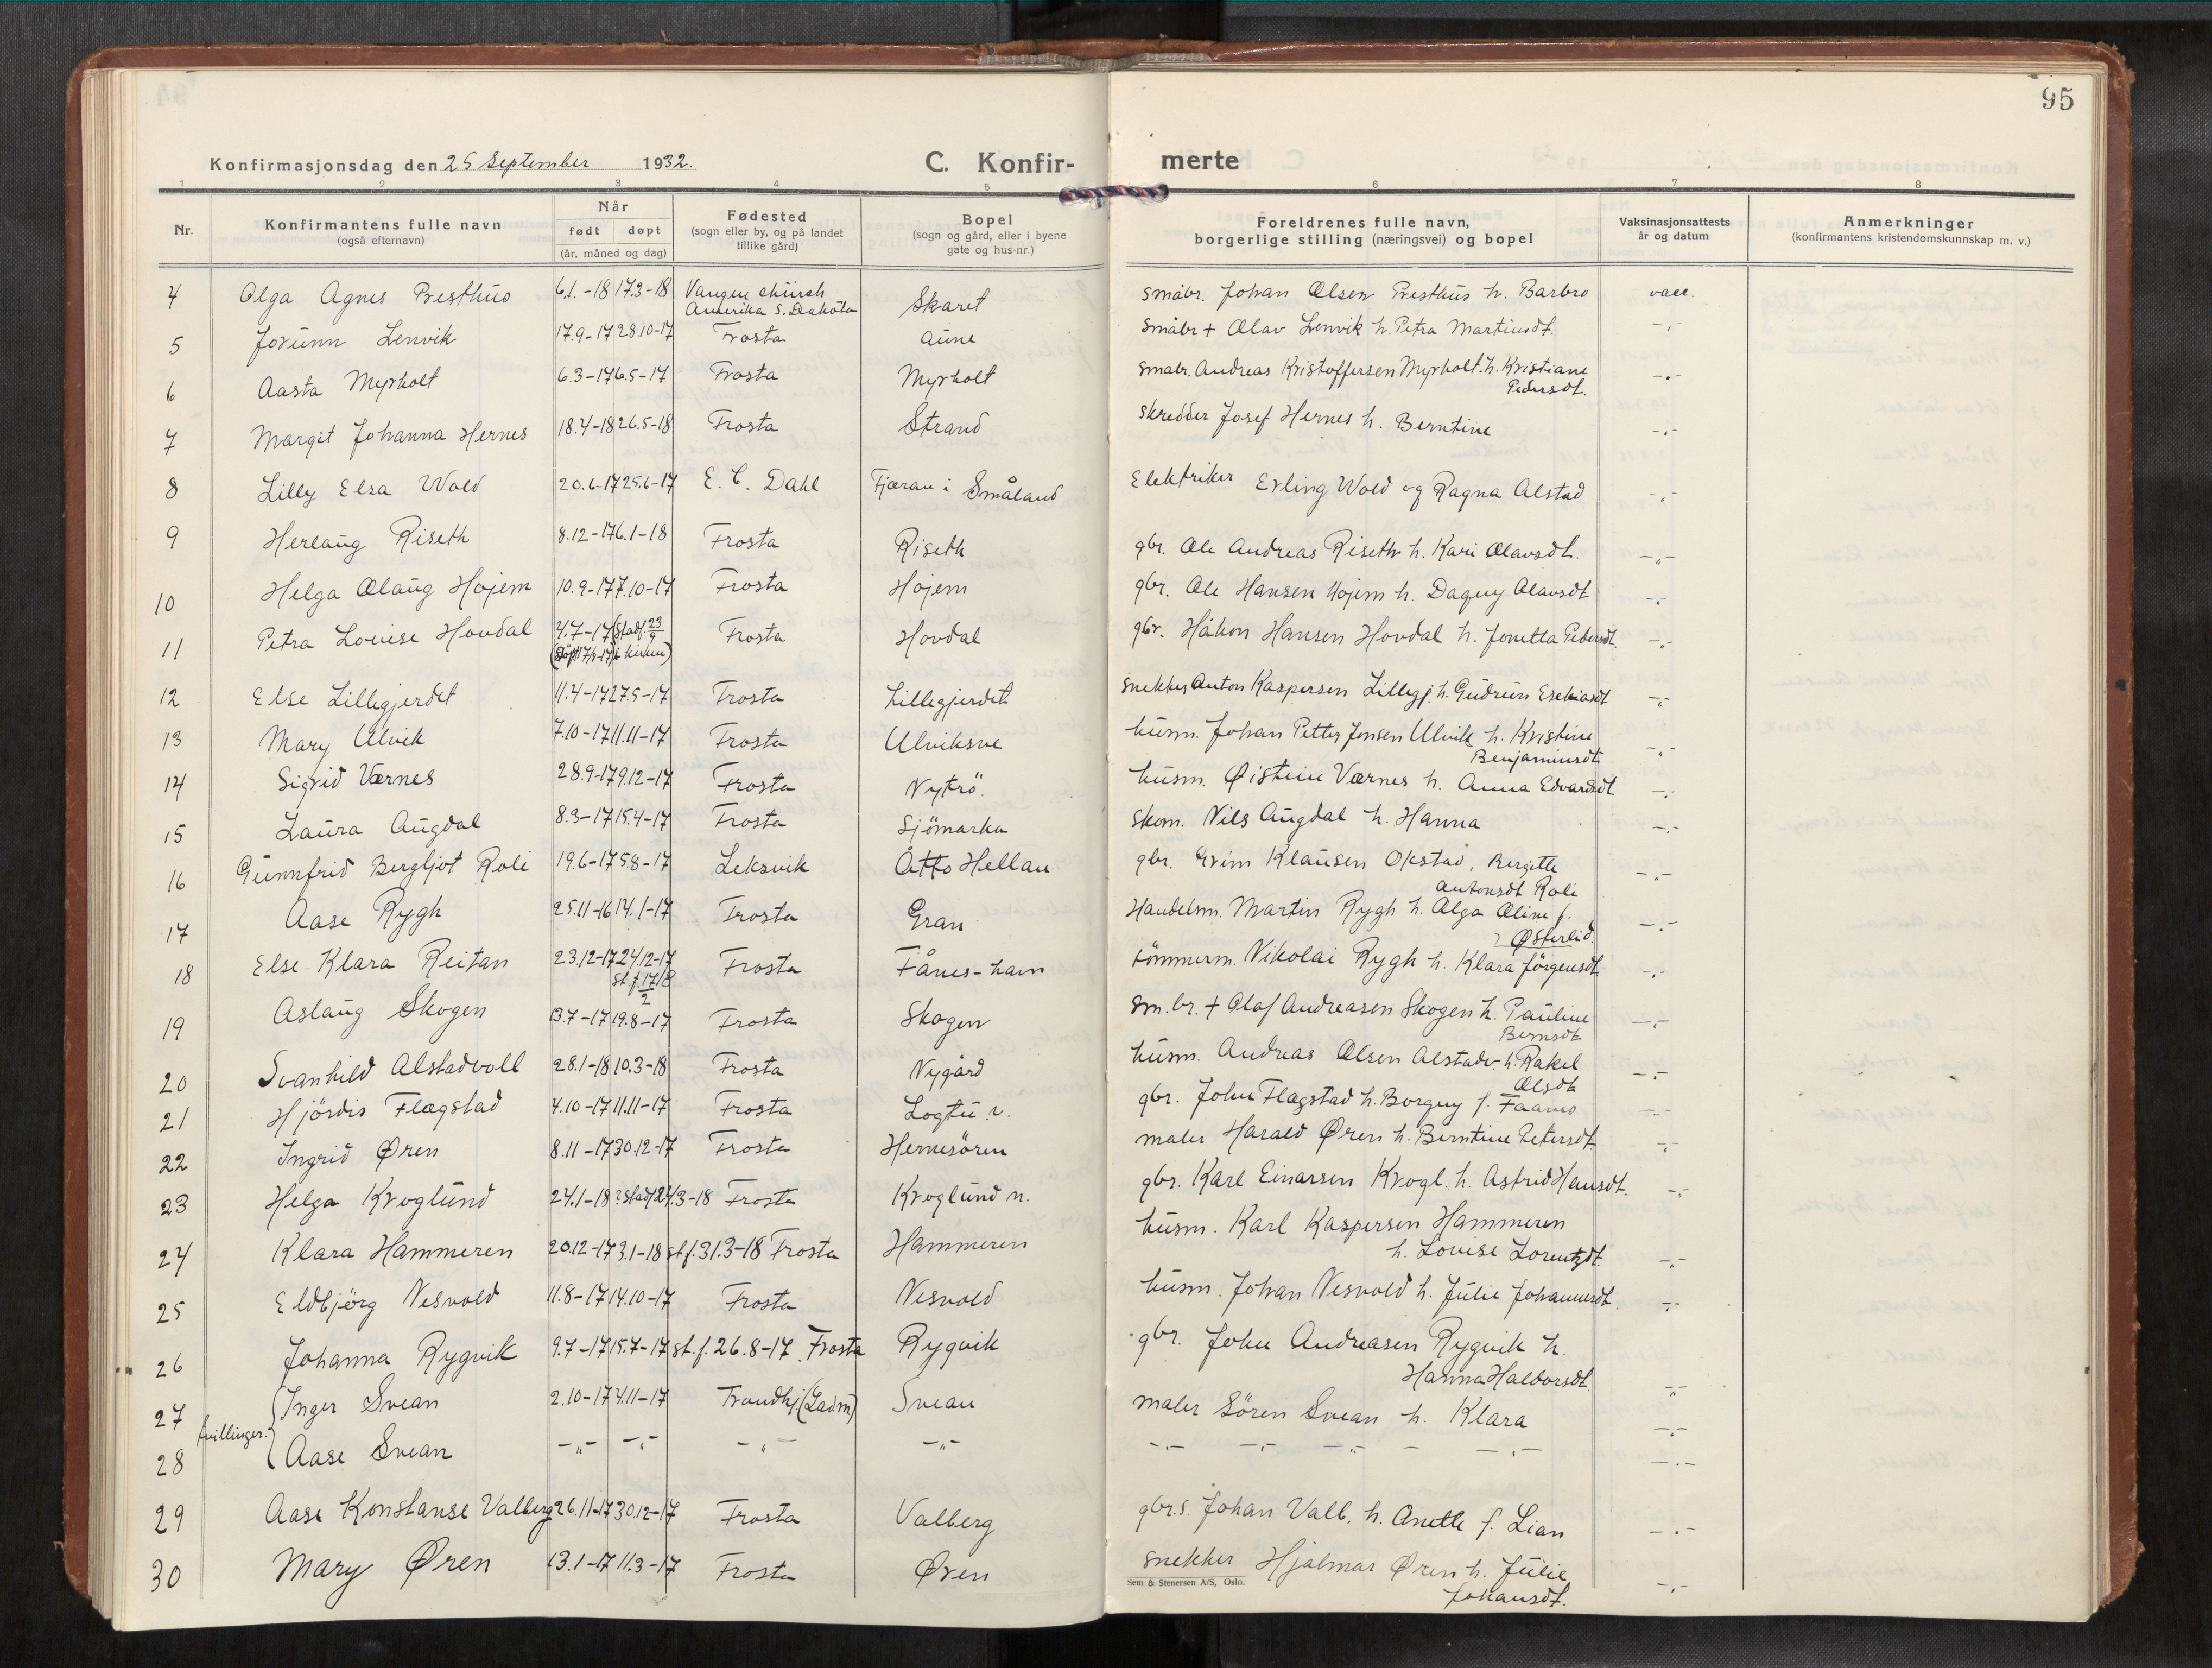 95
Konfirmasjonsdag den 25 September 1932.
C. Konfir-
merte
1 2 3 4 5 6 7 8
Nr.
Konfirmantens fulle navn
(også efternavn)
Når
født døpt
(år, måned og dag)
Fødested
(sogn eller by, og på landet
tillike gård)
Bopel
(sogn og gård, eller i byene
gate og hus-nr.)
Foreldrenes fulle navn,
borgerlige stilling (næringsvei) og bopel
Vaksinasjonsattests
år og datum
Anmerkninger
(konfirmantens kristendomskunnskap m. v.)
4 Olga Agnes Presthus 6.1.-18 17.3-18 Vangen church Skaret småbr. Johan Olsen Presthus h. Barbro vacc.
Amerika S. Dakota
5 Jorunn Lenvik 17.9-17 28.10-17 Frosta Aune småbr + Olav Lenvik h. Petra Martinsdt. -.-
6 Aasta Myrholt 6.3-17 6.5-17 Frosta Myrholt småbr. Andreas Kristoffersen Myrholt. h. Kristiane -.-
Pedersdt.
7 Margit Johanna Hernes 18.4-18 26.5-18 Frosta Strand skredder Josef Hernes h. Berntine -.-
8 Lilly Elsa Wold 20.6-17 25.6-17 E. C. Dahl Fjæran i Småland Elektriker Erling Wold og Ragna Alstad -.-
9 Herlaug Riseth 8.12-17 6.1-18 Frosta Riseth gbr. Ole Andreas Riseth h. Kari Olavsdt. -„-
10 Helga Olaug Hojem 10.9-17 7.10-17 Frosta Hojem gbr. Ole Hansen Hojem h. Dagny Olavsdt -.-
11 Petra Louise Hovdal 4.7-17 (Stadf. 23/9 Frosta Hovdal gbr. Håkon Hansen Hovdal h. Jonetta Pedersdt. -.-
12 Else Lillegjerdet 11.4-17 27.5-17 Frosta Lillegjerdet snekker Anton Kaspersen Lillegj. h. Gudrun Esekiasdt -„-
13 Mary Ulvik 7.10-17 11.11-17 Frosta Ulviksve husm. Johan Petter Jensen Ulvik h. Kristine -.-
Benjaminsdt
14 Sigrid Værnes 28.9-17 9.12-17 Frosta Nytrö. husm. Øistein Værnes h. Anna Edvardsdt -.-
15 Laura Augdal 8.3-17 15.4-17 Frosta Sjömarka skom. Nils Augdal h. Hanna -.-
16 Gunnfrid Bergljot Roli 19.6-17 5.8-17 Leksvik Otto Hellan gbr. Grim Klausen Okstad, Bergitte -.-
Antonsdt Roli
17 Aase Rygh 25.11-16 14.1-17 Frosta Gran Handelsm. Martin Rygh h. Olga Oline f. -.-
Østerlid.
18 Else Klara Reitan 23.12-17 24.12-17 Frosta Fånes-havn tömmerm. Nikolai Rygh h. Klara Jörgensdt -.-
st.f. 17/2 18
19 Aslaug Skogen 13.7-17 19.8-17 Frosta Skogen sm.br. + Olaf Andreasen Skogen h. Pauline -.-
Berntsdt
20 Svanhild Alstadvoll 28.1-18 10.3-18 Frosta Nygård husm. Andreas Olsen Alstadv- h. Rakel -.-
Olsdt
21 Hjördis Flagstad 4.10-17 11.11-17 Frosta Logtu v. gbr. John Flagstad h. Borguy f. Faanes -.-
22 Ingrid Øren 8.11-17 30.12-17 Frosta Hernesören maler Harald Øren h. Berntine Petersdt. -.-
23 Helga Kroglund 24.1-18 ? Stadf 24.3-18 Frosta Kroglund n. gbr. Karl Einarsen Krogl. h. Astrid Hansdt. -.-
24 Klara Hammeren 20.12-17 3.1-18 st.f. 31.3-18 Frosta Hammeren husm. Karl Kaspersen Hammeren
h. Lovise Lorentzdt -.-
25 Eldbjörg Nesvold 11.8-17 14.10-17 Frosta Nesvold husm. Johan Nesvold h. Julie Johannesdt. -.-
26 Johanna Rygvik 9.7-17 15.7-17 st.f. 26.8-17. Frosta Rygvik gbr. John Andreasen Rygvik h.
Hanna Haldorsdt. -„-
27 Inger Svean 2.10-17 4.11-17 Trondhj (Ladm) Svean maler Sören Svean h. Klara -.-
tvillinger.
28 Aase Svean -„- -.- -„- -„- -.- -.- -.- - -.- -.-
29 Aase Konstanse Valberg 26.11-17 30.12-17 Frosta Valberg gbr.s. Johan Valb. h. Anette f. Lian -.-
30 Mary Øren 13.1-17 11.3-17 Frosta Øren snekker Hjalmar Øren h. Julie -.-
Johansdt.
Sem & Stenersen A/S, Oslo.